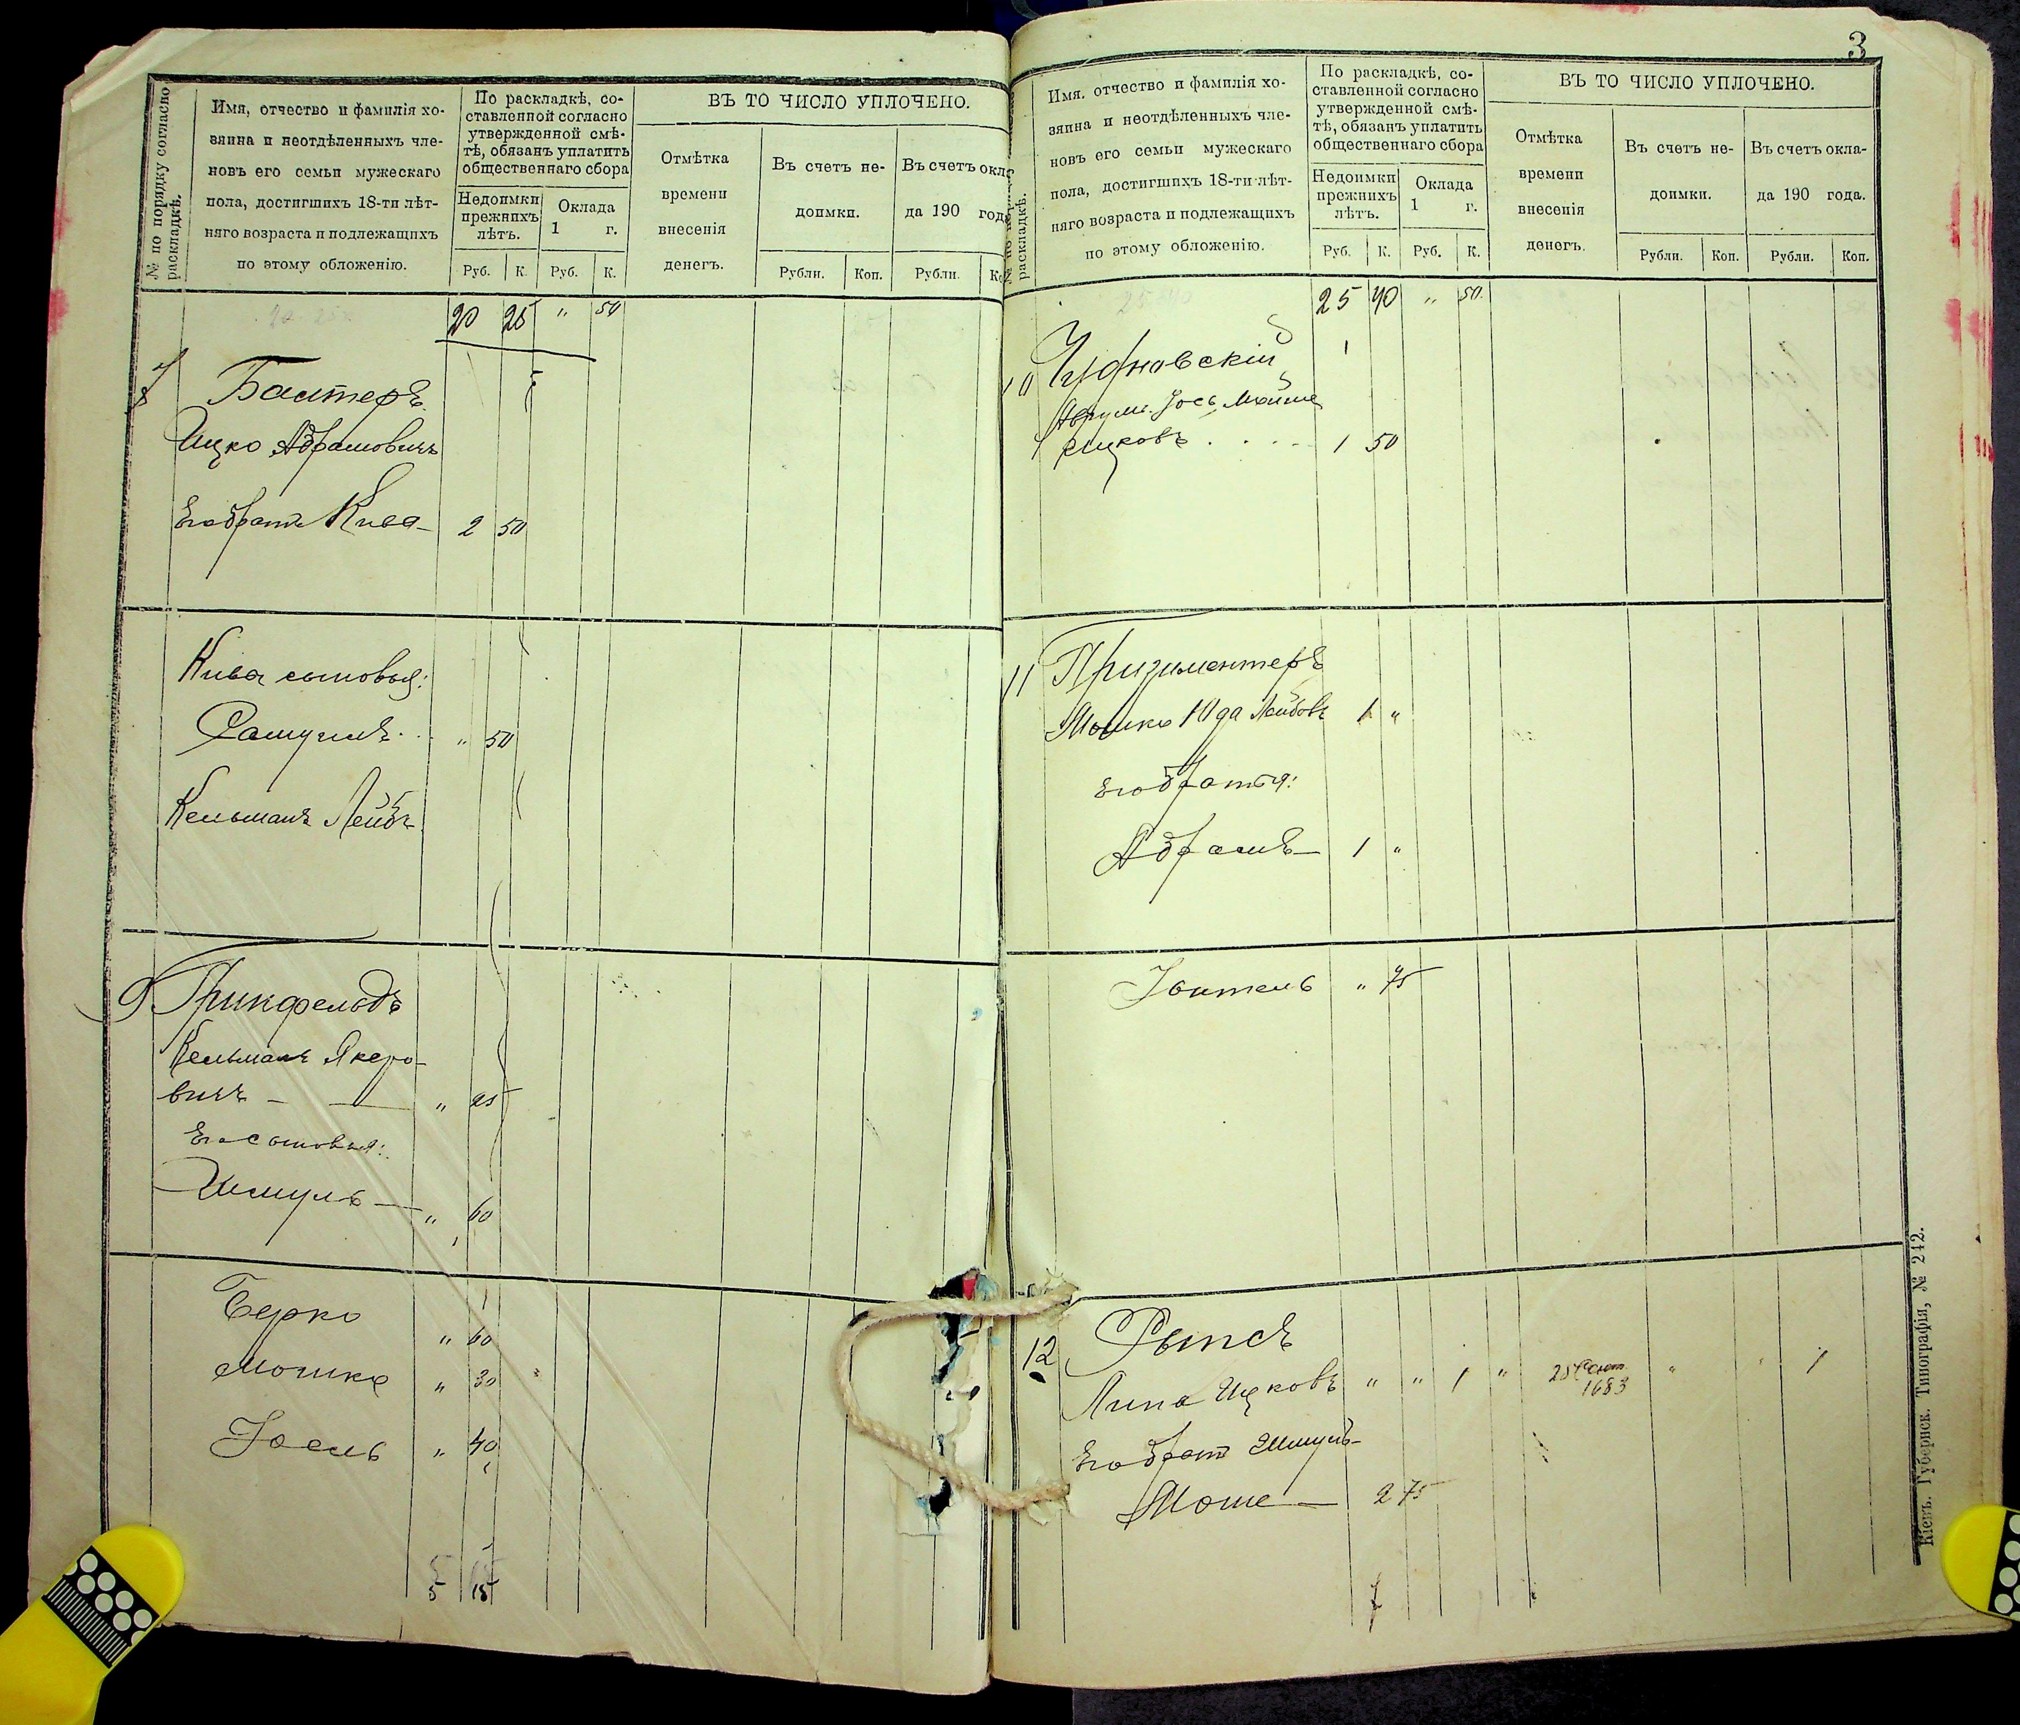 № по порядку согласно
раскладкѣ.
Имя, отчество и фамилія хо-
зяина и неотдѣленныхъ чле-
новъ его семьи мужескаго
пола, достигшихъ 18-ти лѣт-
няго возраста и подлежащихъ
по этому обложенію.
По раскладкѣ, со-
ставленной согласно
утвержденной смѣ-
тѣ, обязанъ уплатить
общественнаго сбора
Недоимки
прежнихъ
лѣтъ.
Оклада
1 г.
Руб. К. Руб. К.
ВЪ ТО ЧИСЛО УПЛОЧЕНО.
Отмѣтка
времени
внесенія
денегъ.
Въ счетъ не-
доимки.
Рубли. Коп.
Въ счетъ окл
да 190 год
Рубли.
20 25 " 50
8 Бастеръ
Ицко Абрамовичъ
Его братъ Кива 2 50
Кива сыновья:
Самуилъ " 50
Кельманъ Лейбъ
9 Гринфельдъ
Кельманъ Якеро-
вичъ — " 25
Его сыновья:
Шмуль — " 60
Берко " 60
Мошко " 30
Іосль " 40
5 15
3
раскладкѣ.
Имя, отчество и фамилія хо-
зяина и неотдѣленныхъ чле-
новъ его семьи мужескаго
пола, достигшихъ 18-ти лѣт-
няго возраста и подлежащихъ
по этому обложенію.
По раскладкѣ, со-
ставленной согласно
утвержденной смѣ-
тѣ, обязанъ уплатить
общественнаго сбора
Недоимки
прежнихъ
лѣтъ.
Оклада
1 г.
Руб. К. Руб. К.
ВЪ ТО ЧИСЛО УПЛОЧЕНО.
Отмѣтка
времени
внесенія
денегъ.
Въ счетъ не-
доимки.
Рубли. Коп.
Въ счетъ окла-
да 190 года.
Рубли. Коп.
25 40 " 50
10 Чудновскій
Аврумъ Іось Мойше
Ицковъ 1 50
11 Призментеръ
Мошко Юда Лейбовъ 1 "
Его братья:
Абрамъ — 1 "
" 75
12 Рытсъ
Липа Ицковъ " " 1 " 25 Сент. 1683 " 1
Его братъ Шмуль
Моше — 2 75
7
Кіевъ. Губернск. Типографія, № 242.